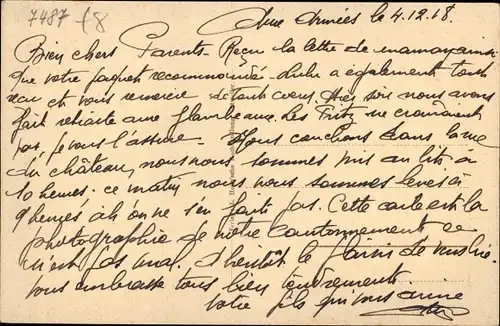 7487 f8
Aux Armées le 4.12.18.
Bien chers Parents - Reçu la lettre de maman ainsi
que votre paquet recommandé. Lulu a également touché
et vous remercie de tout coeur. Hier soir nous avons
fait retraite aux flambeaux. Les Fritz ne
pas, je vous l'assure - Nous couchons dans la
du château, nous nous sommes mis au lit à
10 heures. ce matin nous nous sommes levés à
9 heures ah on ne s'en fait pas. Cette carte est la
photographie de notre cantonnement ce
n'est pas mal. A bientôt le plaisir de vous lire.
vous embrasse tous bien tendrement.
votre fils qui vous aime